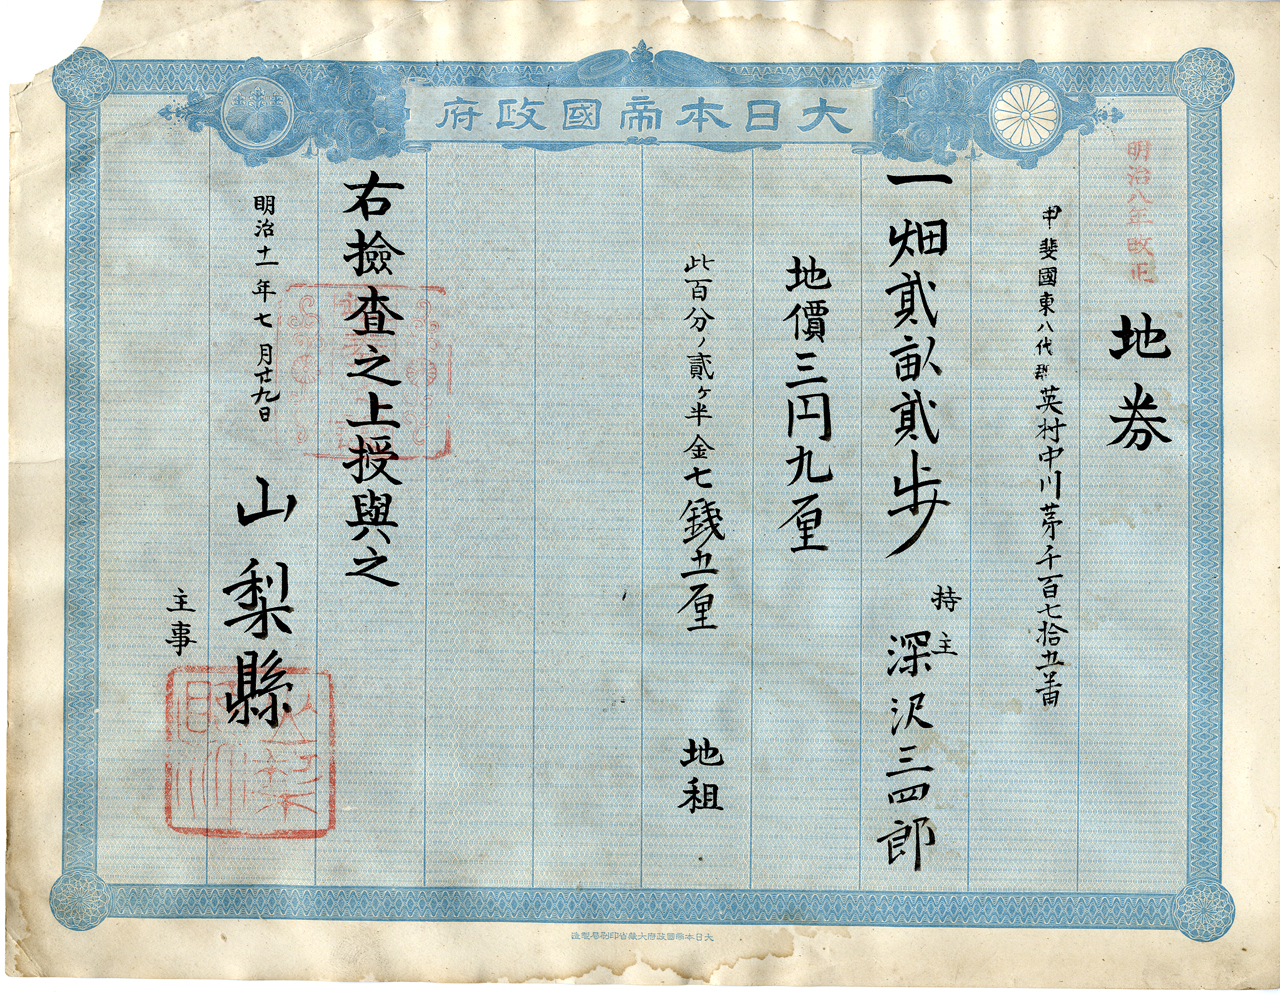 大日本帝國政府
明治八年改正
地券
甲斐國東八代郡英村中川茅千百七拾五番
一畑貳畝貳歩
持主
深沢三四郎
地價三円九厘
此百分ノ貳ヶ半金七銭五厘
地租
右撿査之上授與之
明治十一年七月廿九日
山梨縣
主事
大日本帝國政府大藏省印刷局製造